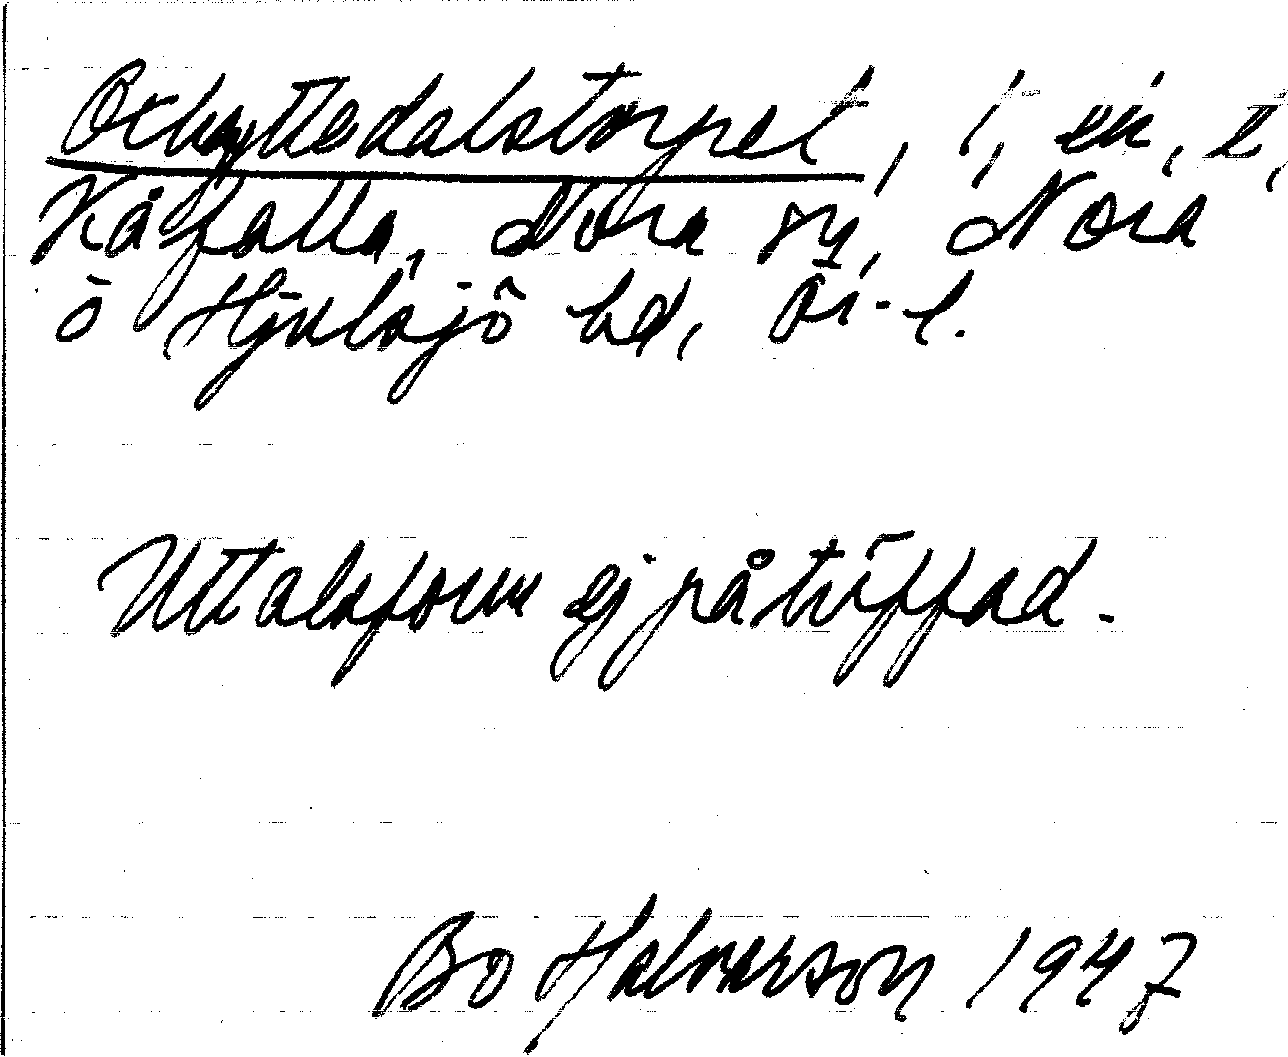 Öskyttedalstorpet, t, en, t,
Kåfalla, Nora sn, Nora
o Hjulsjö bd, Ör-l.
Uttalsform ej påträffad.
Bo Halvarson 1947